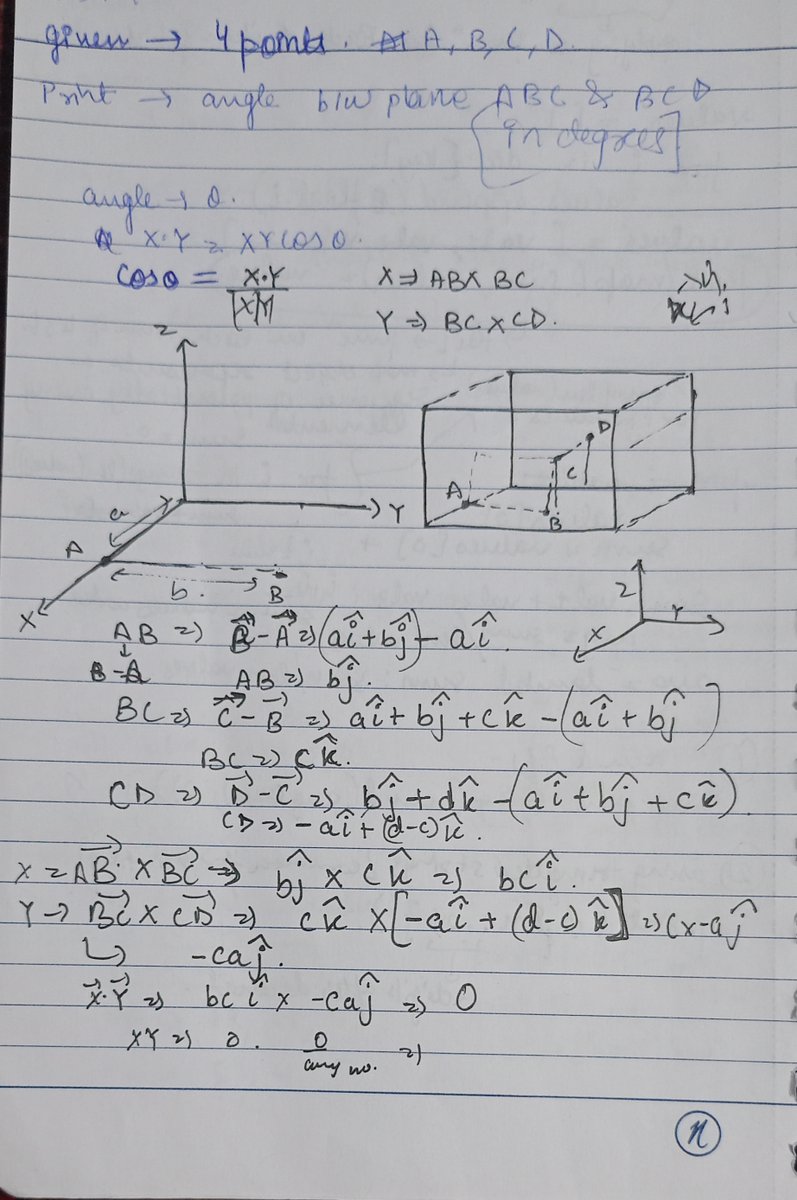 given → 4 points. A, B, C, D.
Print → angle b/w plane ABC & BCD
[in degrees]
angle → θ.
X·Y = XY cosθ.
cosθ = X·Y / |X||Y|
X ⇒ AB X BC
Y ⇒ BC X CD.
Z
a
A
Y
X
b.
B
A
B
C
D
Z
Y
X
AB ⇒ B⃗ - A⃗ ⇒ (aî + bĵ) - aî.
↓
B-A
AB ⇒ bĵ.
BC ⇒ C⃗ - B⃗ ⇒ aî + bĵ + ck̂ - (aî + bĵ)
BC ⇒ ck̂.
CD ⇒ D⃗ - C⃗ ⇒ bĵ + dk̂ - (aî + bĵ + ck̂).
CD ⇒ -aî + (d-c)k̂.
X = AB⃗ X BC⃗ ⇒ bĵ x ck̂ ⇒ bcî.
Y → BC⃗ X CD⃗ ⇒ ck̂ X [-aî + (d-c)k̂] ⇒ cx-aĵ
↳ -caĵ.
X⃗·Y⃗ ⇒ bcî x -caĵ ⇒ 0
XY ⇒ 0. 0 / any no. ⇒
n